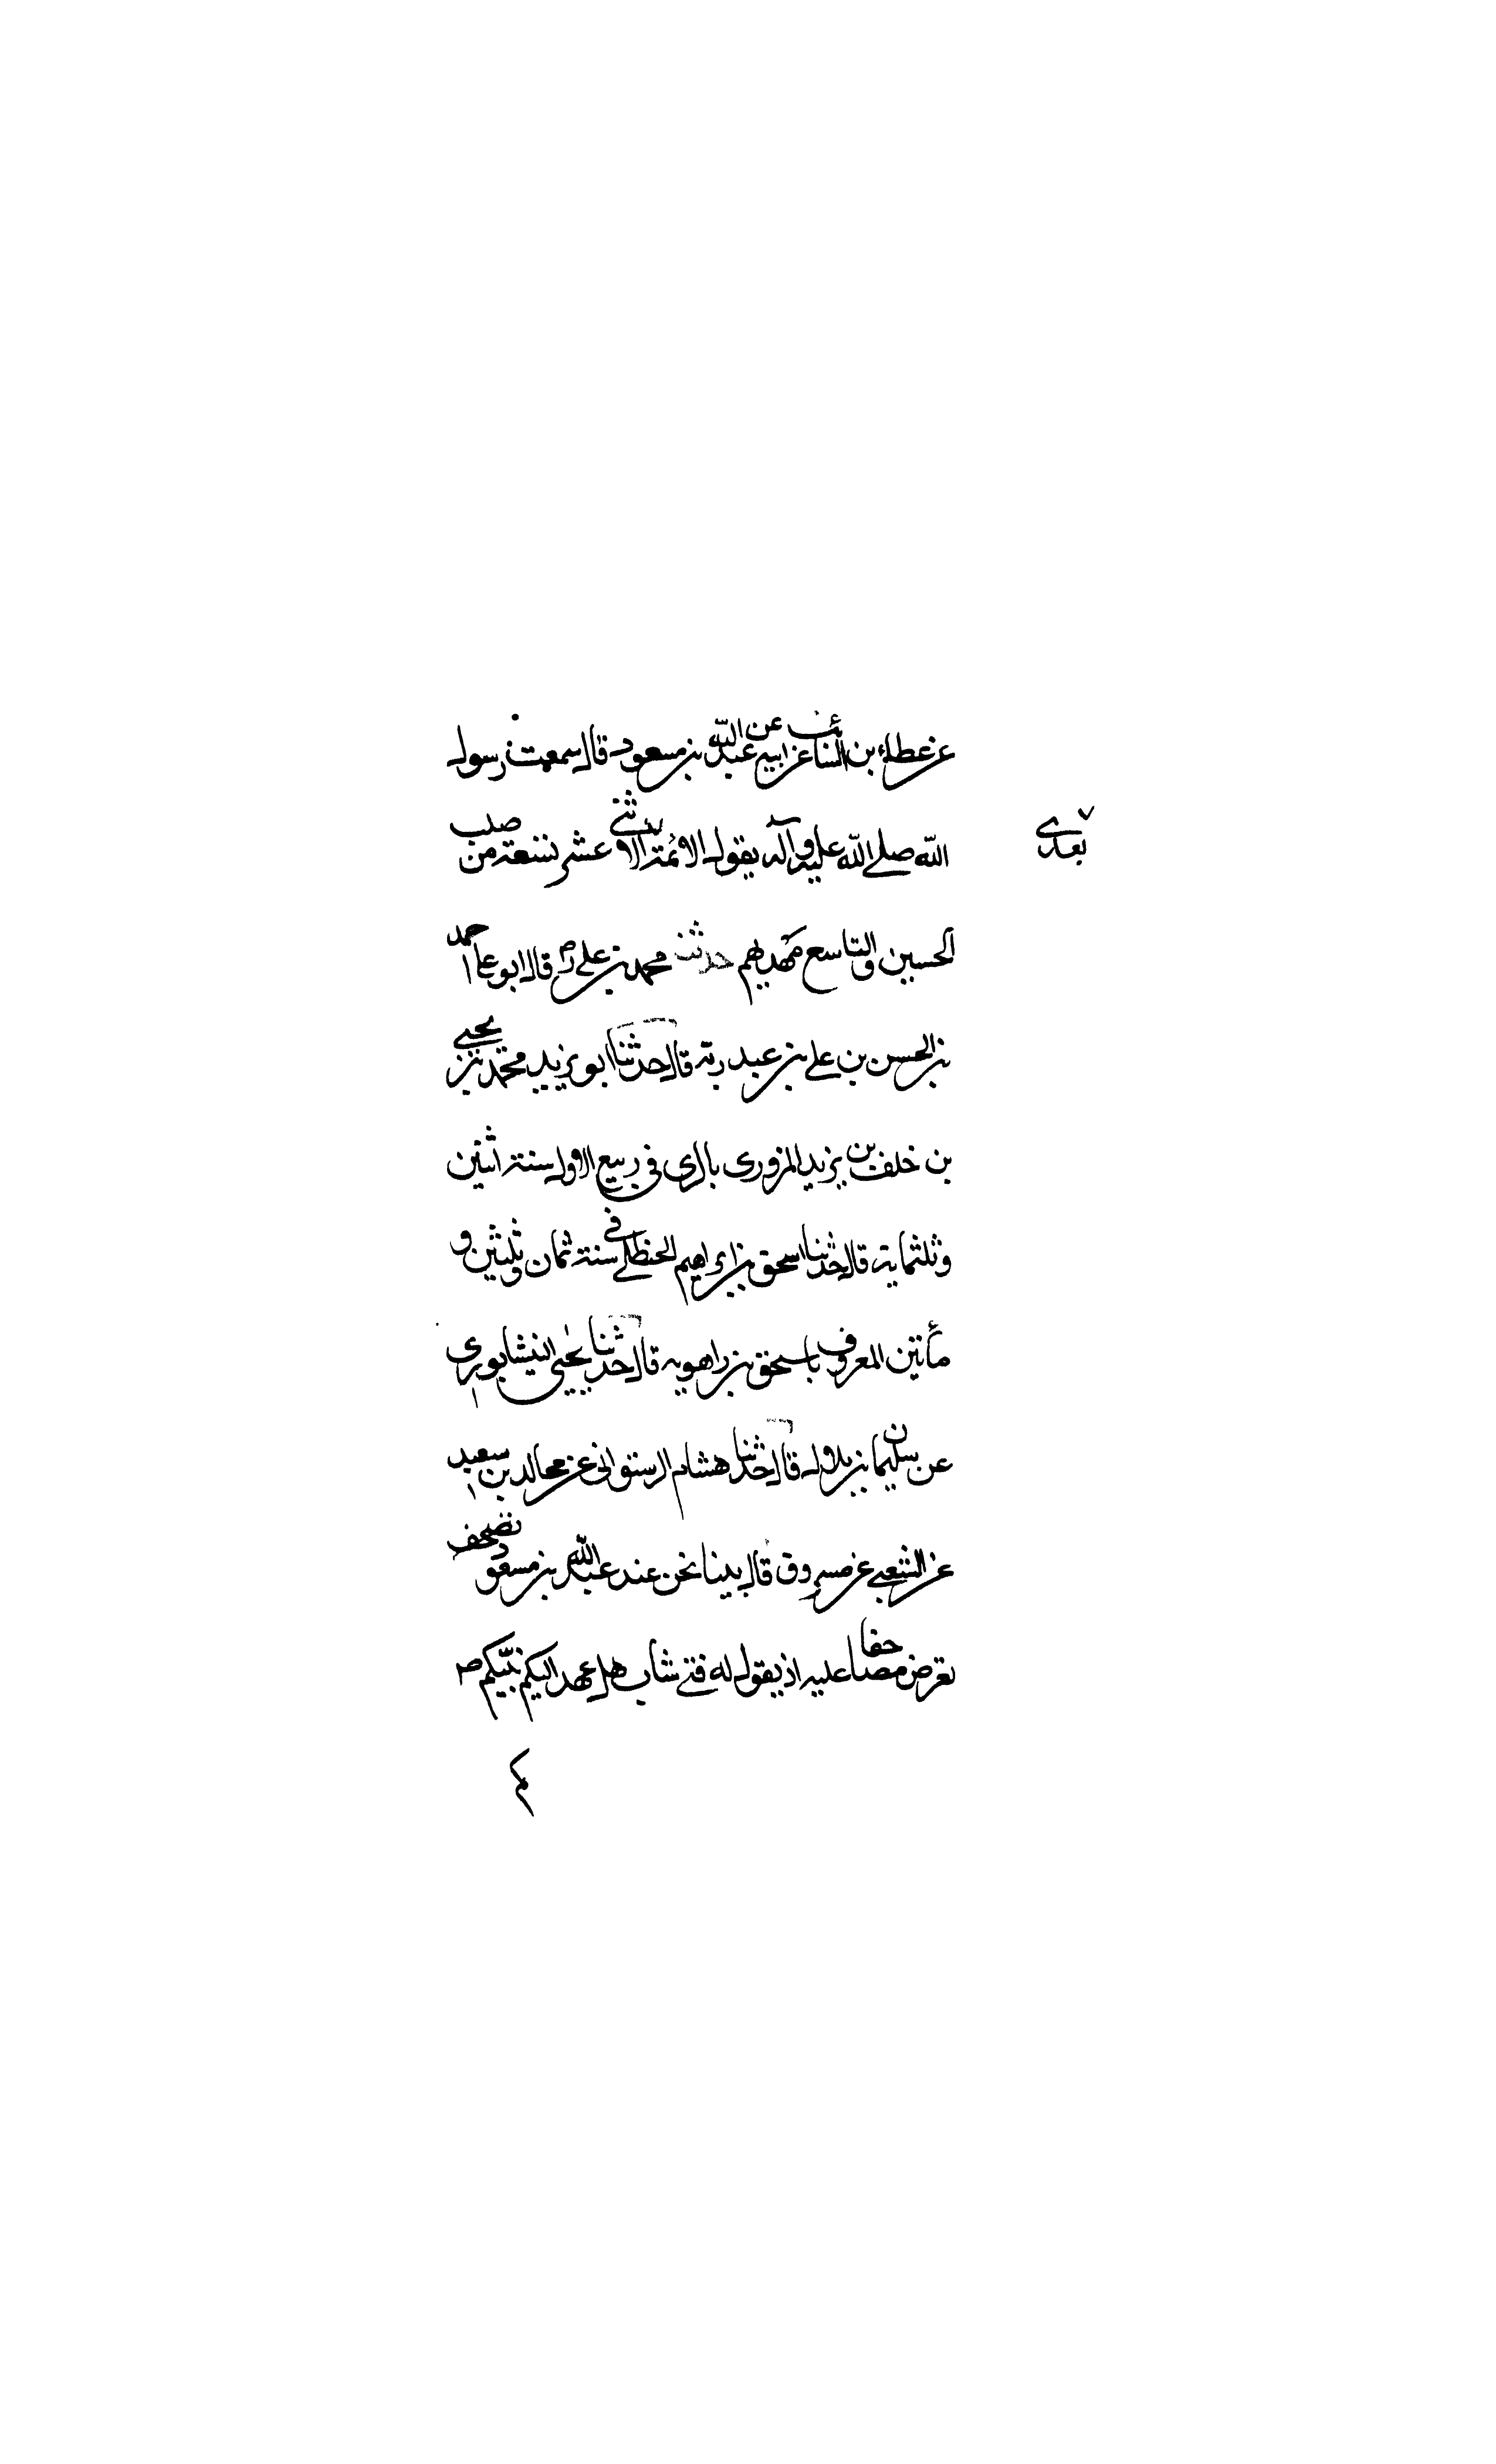 عن عطاء بن السائب عن ابيه عن عبد الله بن مسعود قال سمعت رسول
الله صلى الله عليه وآله يقول الائمة بعدي الاثنى عشر تسعة من صلب
الحسين والتاسع مهديهم حدثنا محمد بن علي رض قال ابو علي احمد
بن الحسن بن علي بن عبد ربه قال حدثنا ابو يزيد محمد بن يحيى
بن خلف بن يزيد المزورى بالرى فى ربيع الاول سنة اثنين
وثلثماية قال حدثنا اسحق بن ابراهيم الحنظلي فى سنة ثمان وثلثين و
مأتين المعروف باسحق بن راهويه قال حدثنا يحيى النيشابورى
عن سليمان بن بلال قال حدثنا هشام الرستوانى عن مجالد بن سعيد
عن الشعبي عن مسروق قال بينا نحن عند عبد الله بن مسعود
نعرض مصاحفنا عليه اذ يقول له فتى شاب هل عهد اليكم نبيكم ص